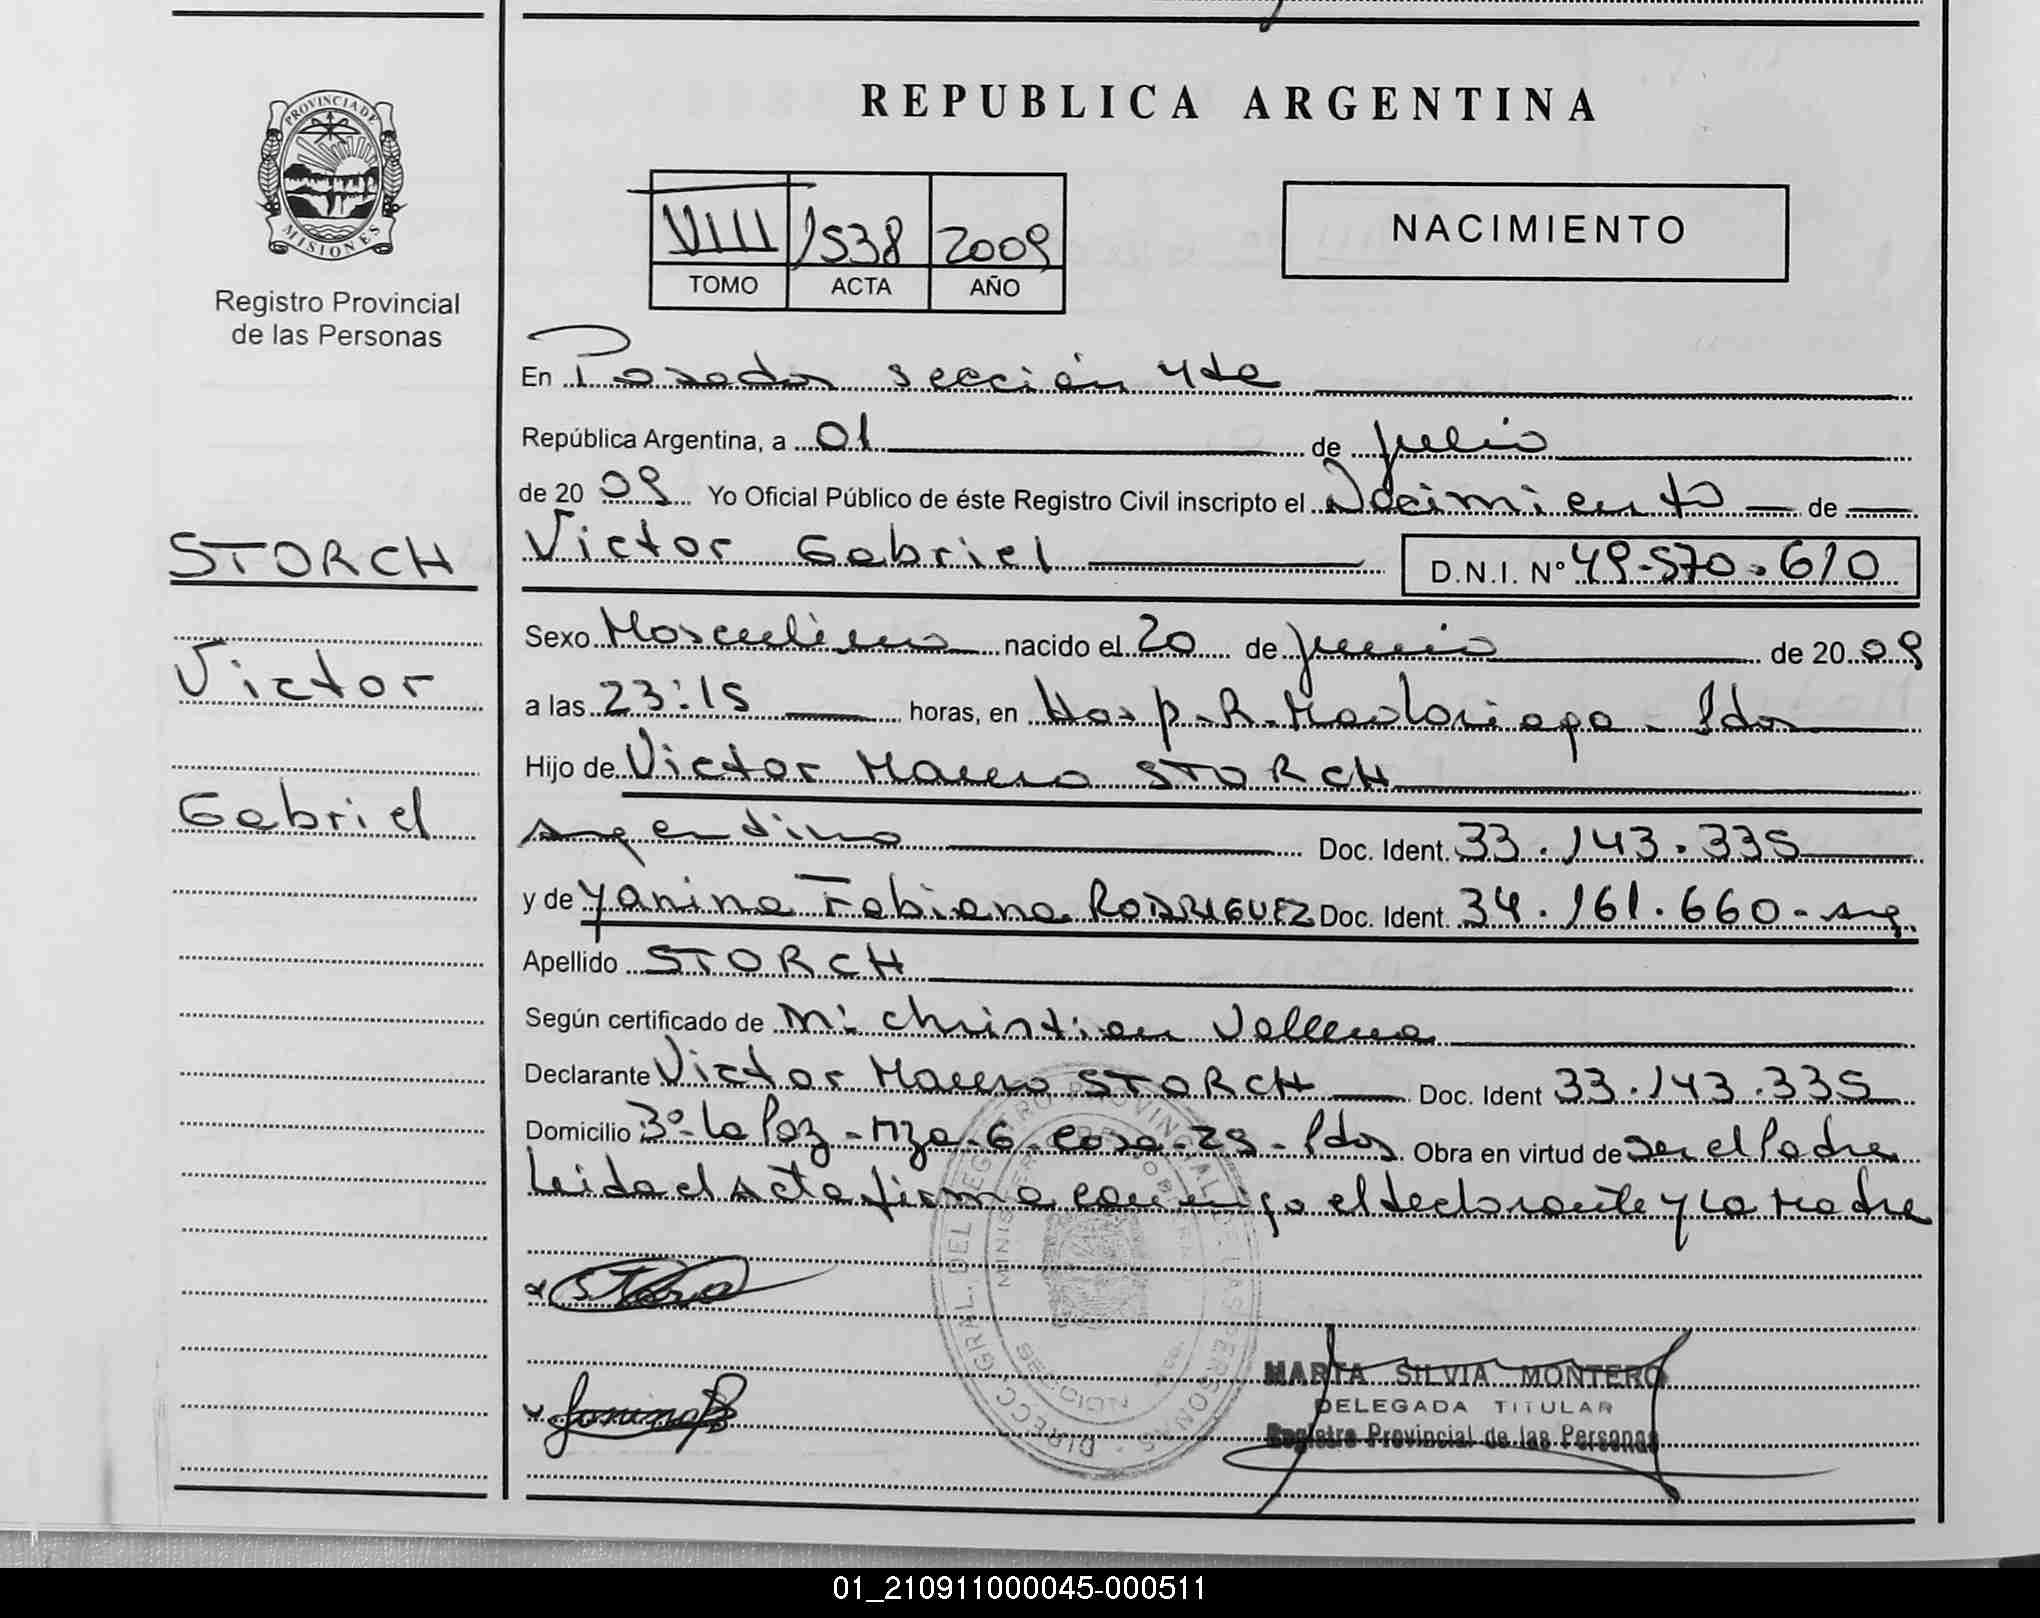 REPUBLICA ARGENTINA
PROVINCIA DE
MISIONES
Registro Provincial
de las Personas
VIII 1538 2009
TOMO ACTA AÑO
NACIMIENTO
En Posadas sección 4ta
República Argentina, a 01 de Julio
de 2009 Yo Oficial Público de éste Registro Civil inscripto el Nacimiento de
STORCH
Victor
Gabriel
Victor Gabriel D.N.I. Nº 49.570.610
Sexo Masculino nacido el 20 de Junio de 2009
a las 23:15 horas, en Hosp. R. Madariaga - Pdas
Hijo de Victor STORCH
argentino Doc. Ident. 33.143.335
y de Yanina Fabiana RODRIGUEZ Doc. Ident. 34.161.660 - arg.
Apellido STORCH
Según certificado de Christian
Declarante Victor STORCH Doc. Ident 33.143.335
Domicilio Bº La Paz - Mza - 6 casa - Pdas Obra en virtud de ser el Padre
Leida el Acta firma conmigo el declarante y La Madre
DIRECC. GRAL. DEL REGISTRO PROVINCIAL DE LAS PERSONAS
SECCION
MARTA SILVIA MONTERO
DELEGADA TITULAR
Registro Provincial de las Personas
01_210911000045-000511